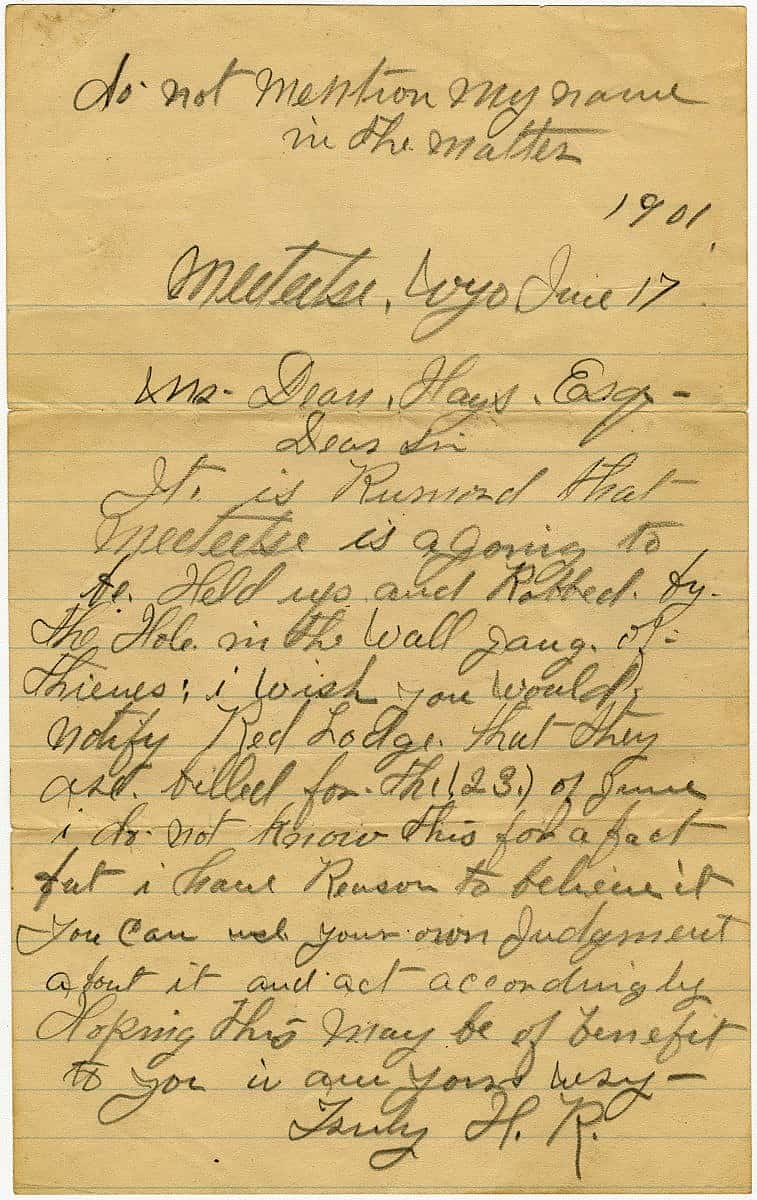 do not mention my name
in the matter
1901.
Meeteetse, Wyo June 17
Mr. Dean, Hays. Esq -
Dear Sir
It. is Rumord that
Meeteetse is a going to
be. Held up and Robbed. by.
the Hole in the Wall gang. of-
thieves; i wish you would,
notify Red Lodge. that they
are. billed for. the (23.) of June
i do not know this for a fact
but i have Reason to believe it
you can use your own Judgment
about it and act accordingly
Hoping this may be of benefit
to you i am yours very -
Truly H. R.